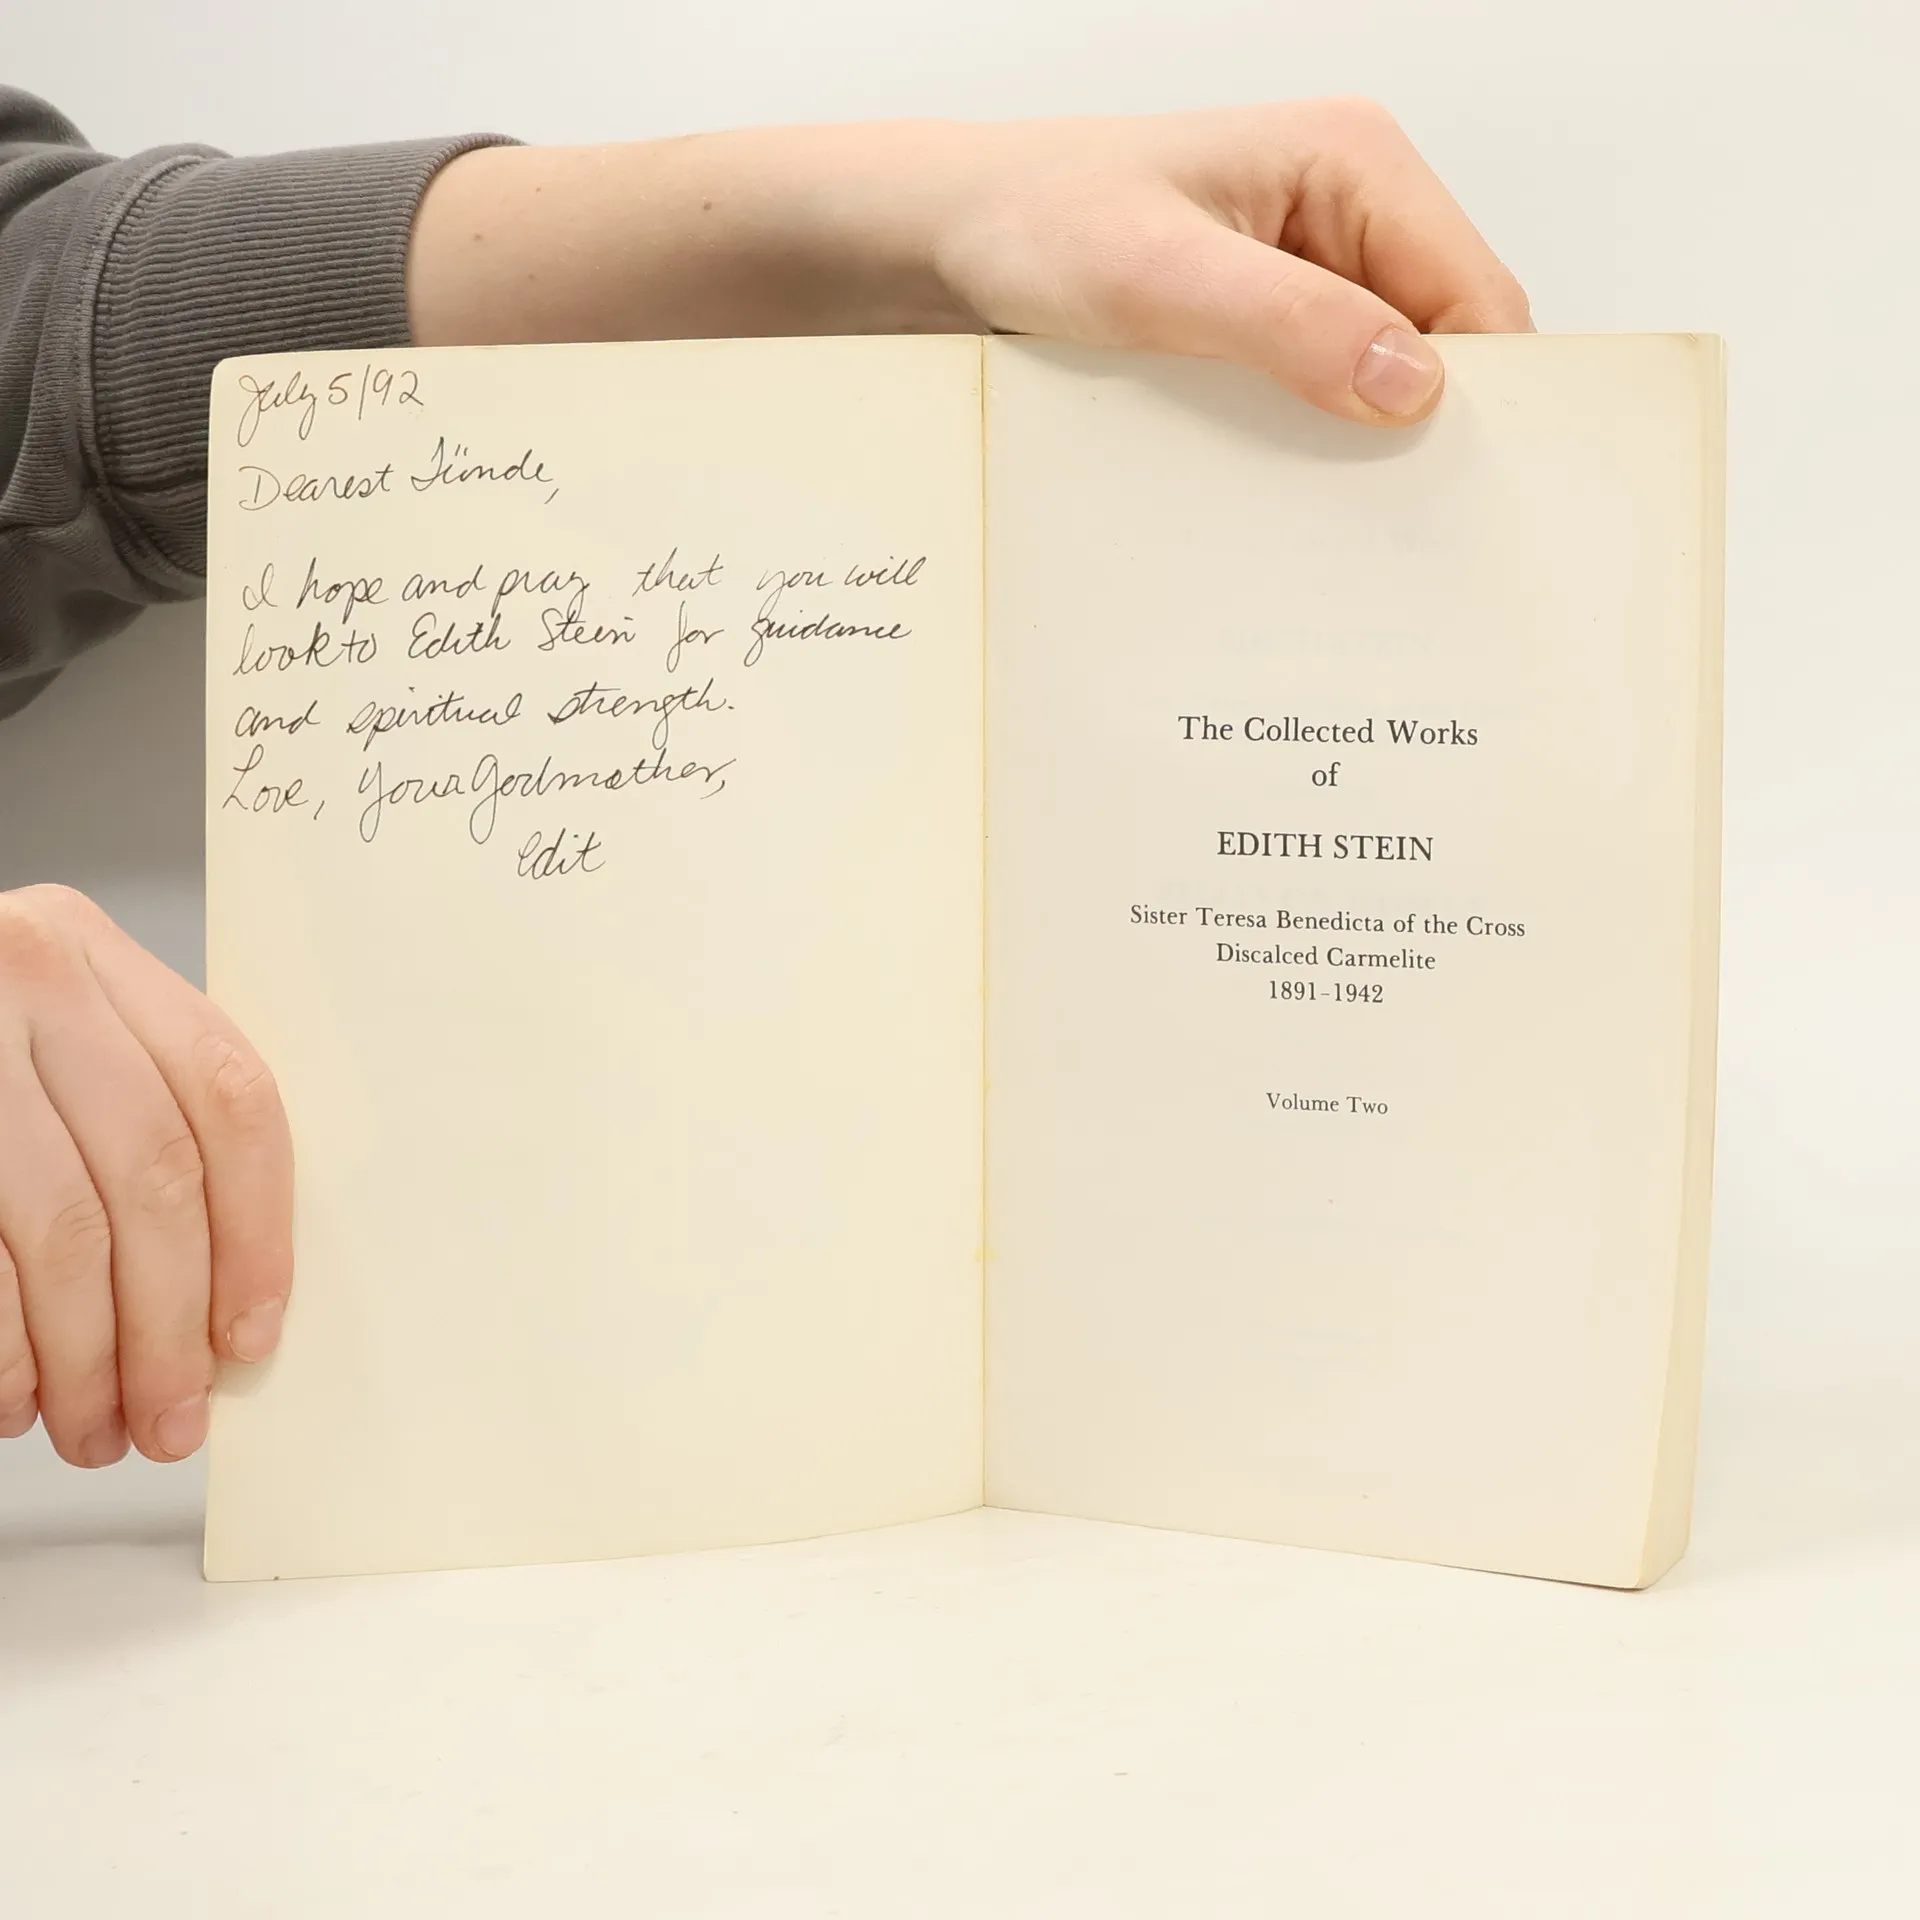 July 5/92
Dearest Tünde,
I hope and pray that you will
look to Edith Stein for guidance
and spiritual strength.
Love, Your Godmother,
Edit
The Collected Works
of
EDITH STEIN
Sister Teresa Benedicta of the Cross
Discalced Carmelite
1891–1942
Volume Two